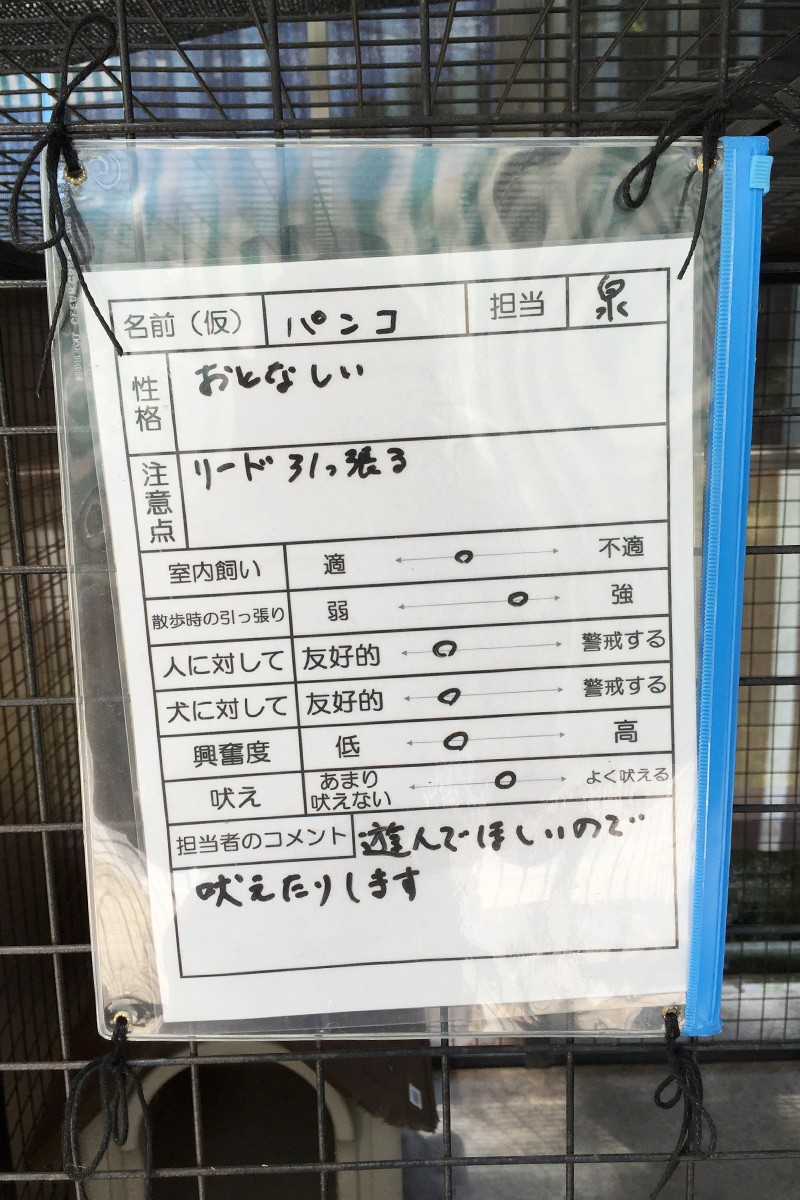 名前（仮） パンコ 担当 泉
性格 おとなしい
注意点 リード引っ張る
室内飼い 適 不適
散歩時の引っ張り 弱 強
人に対して 友好的 警戒する
犬に対して 友好的 警戒する
興奮度 低 高
吠え あまり吠えない よく吠える
担当者のコメント 遊んでほしいので
吠えたりします